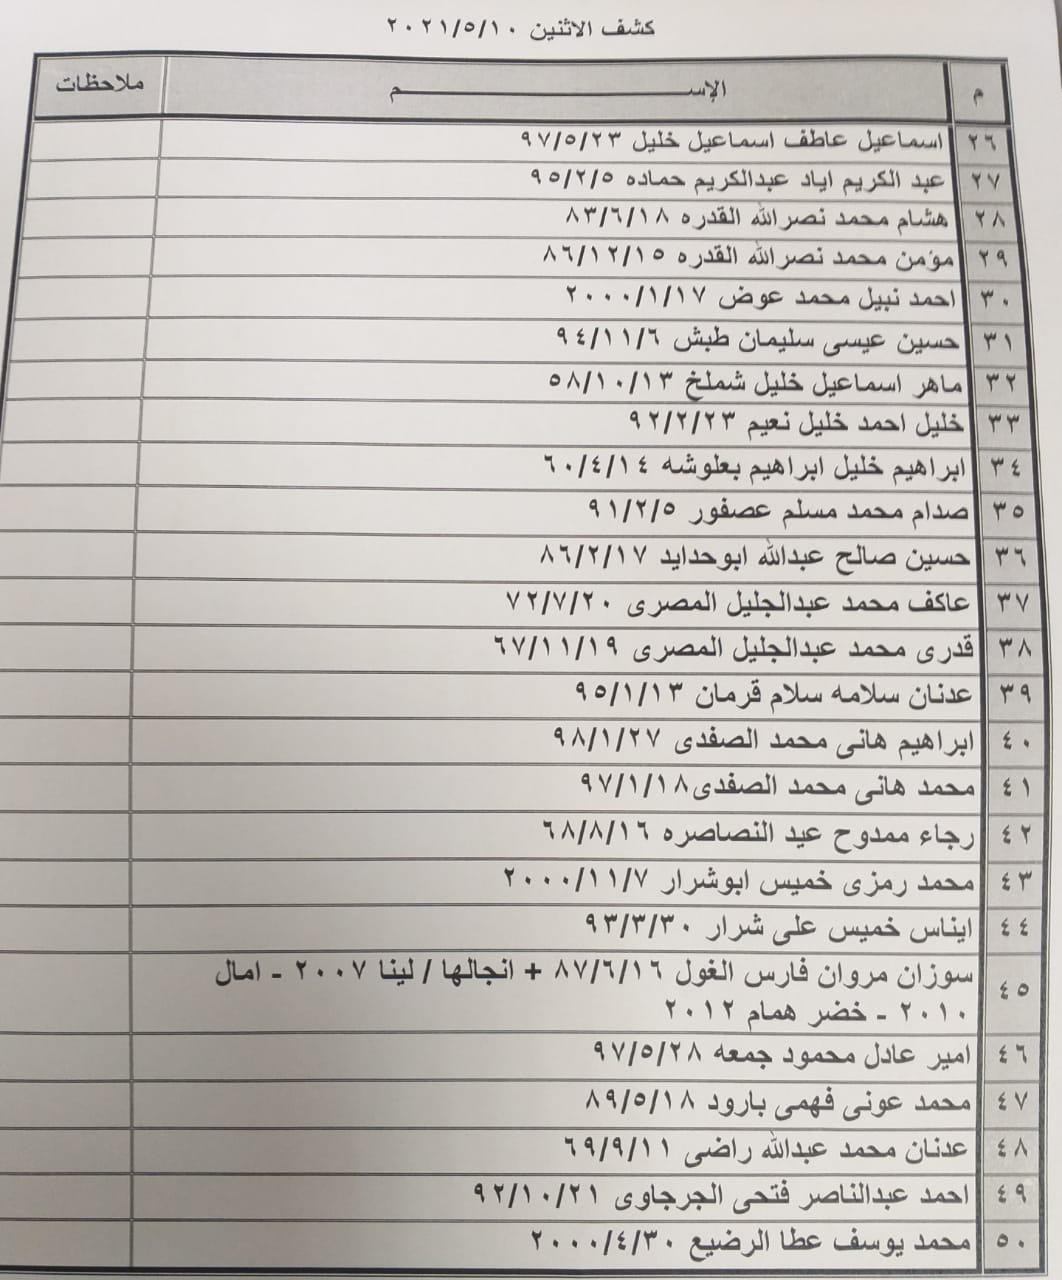 كشف الاثنين ٢٠٢١/٥/١٠
م الإســـــــــــــــــم ملاحظات
٢٦ اسماعيل عاطف اسماعيل خليل ٩٧/٥/٢٣
٢٧ عبد الكريم اياد عبدالكريم حماده ٩٥/٢/٥
٢٨ هشام محمد نصرالله القدره ٨٣/٦/١٨
٢٩ مؤمن محمد نصرالله القدره ٨٦/١٢/١٥
٣٠ احمد نبيل محمد عوض ٢٠٠٠/١/١٧
٣١ حسين عيسى سليمان طبش ٩٤/١١/٦
٣٢ ماهر اسماعيل خليل شملخ ٥٨/١٠/١٣
٣٣ خليل احمد خليل نعيم ٩٢/٢/٢٣
٣٤ ابراهيم خليل ابراهيم بعلوشه ٦٠/٤/١٤
٣٥ صدام محمد مسلم عصفور ٩١/٢/٥
٣٦ حسين صالح عبدالله ابوحدايد ٨٦/٢/١٧
٣٧ عاكف محمد عبدالجليل المصرى ٧٢/٧/٢٠
٣٨ قدرى محمد عبدالجليل المصرى ٦٧/١١/١٩
٣٩ عدنان سلامه سلام قرمان ٩٥/١/١٣
٤٠ ابراهيم هانى محمد الصفدى ٩٨/١/٢٧
٤١ محمد هانى محمد الصفدى٩٧/١/١٨
٤٢ رجاء ممدوح عيد النصاصره ٦٨/٨/١٦
٤٣ محمد رمزى خميس ابوشرار ٢٠٠٠/١١/٧
٤٤ ايناس خميس على شرار ٩٣/٣/٣٠
٤٥ سوزان مروان فارس الغول ٨٧/٦/١٦ + انجالها / لينا ٢٠٠٧ - امال
٢٠١٠ - خضر همام ٢٠١٢
٤٦ امير عادل محمود جمعه ٩٧/٥/٢٨
٤٧ محمد عونى فهمى بارود ٨٩/٥/١٨
٤٨ عدنان محمد عبدالله راضى ٦٩/٩/١١
٤٩ احمد عبدالناصر فتحى الجرجاوى ٩٢/١٠/٢١
٥٠ محمد يوسف عطا الرضيع ٢٠٠٠/٤/٣٠